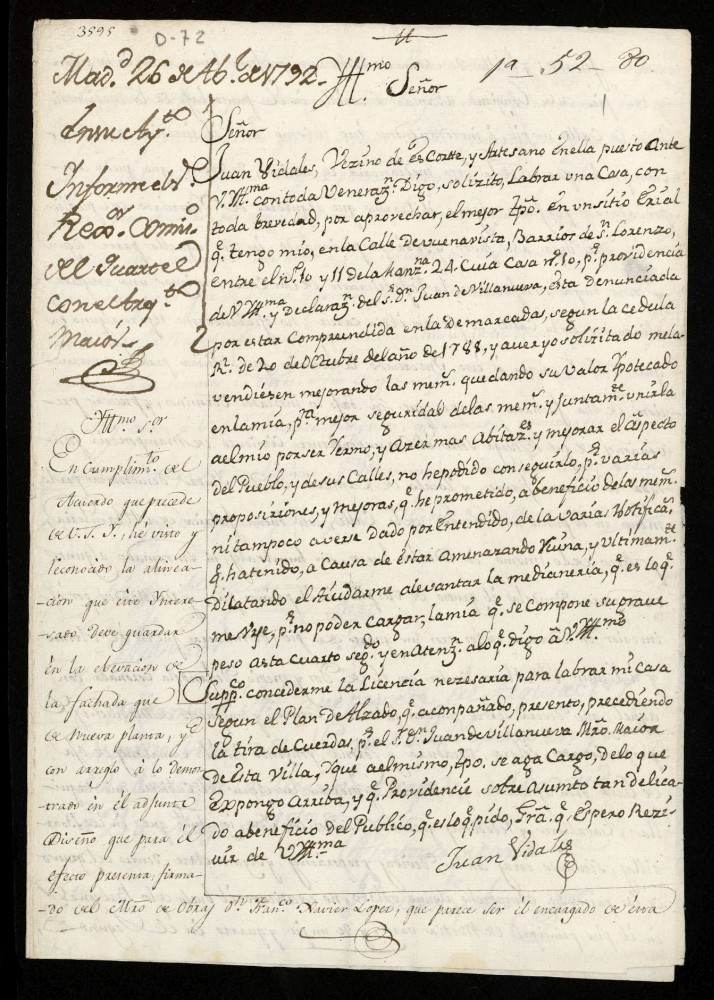 3595
D-72
Mad.d 26 de Ab.l de 1792.
1a - 52 - 80
Yll.mo Señor
En su Ay.to
Informe el S.r
Rexor. Comis.o
del Quartel
con el Arq.to
Maior
Señor
Juan Vidales, Vezino de Es Corte, y Artesano en ella puesto Ante
V. Yll.ma con toda Veneraz.n Digo, solizito, Labrar una Casa, con
toda brevedad, por aprovechar, el mejor tpo. en un sitio Erial
q.e tengo mio, en la Calle de vuenavista, Barrios de S.n Lorenzo,
entre el n.o 10 y 11 de la Manz.na 24. Cuia Casa n.o 10, p.r providencia
de V Yll.ma y Declaraz.n del S.r D.n Juan de Villanueva, esta denunciada
por estar Compreendida en la Demarcadas, segun la cedula
R.l de 20 de Octubre del año de 1788, y aver yo solizitado me la
vendiesen mejorando las mem.s quedando su valor Ypotecado
en la mia, p.a mejor seguridad de las mem.s y Juntam.te unirla
a el mio por ser Yermo, y Azer mas Abitaz.es y mejorar el Aspecto
del Pueblo, y de sus Calles, no he podido conseguirlo, p.r varias
proposiziones, y mejoras, q.e he prometido, a beneficio de las mem.s
ni tampoco averse dado por Entendido, de la varias Notificaz.s
q.e ha tenido, a Causa de estar Amenazando Ruina, y ultimam.te
dilatando el Aiudarme a levantar la medianeria, q.e es lo q.e
me Urje, p.r no poder Cargar, la mia q.e se compone su grave
peso asta cuarto seg.do y en Atenz.n a lo q.e digo a V. Yll.ma
Supp.co concederme la Licencia nezesaria para labrar mi casa
segun el Plan de Alzado, q.e acompañado, presento, precediendo
la tira de Cuerdas, p.r el S.r D.n Juan de Villanueva Mro. Maior
de Esta Villa, Y que a el mismo, tpo. se aga Cargo, de lo que
Expongo Arriba, y q.e Providencie sobre Asumto tan delica-
do a beneficio del Publico, q.e es lo q.e pido, Gra. q.e Espero Rezi-
vir de V Yll.ma
Juan Vidales
Yll.mo S.or
En Cumplim.to del
Acuerdo que precede
de V.S.Y., hé visto y
reconocido la alinea-
-cion que este Yntere-
-sado deve guardar
en la elevacion de
la fachada que
de nueva planta, y
con arreglo á lo demos-
-trado en él adjunto
Diseño que para él
efecto presenta, firma-
-do del Mro de Obras D.n Fran.co Xavier Lopez, que parece ser él encargado de ésta